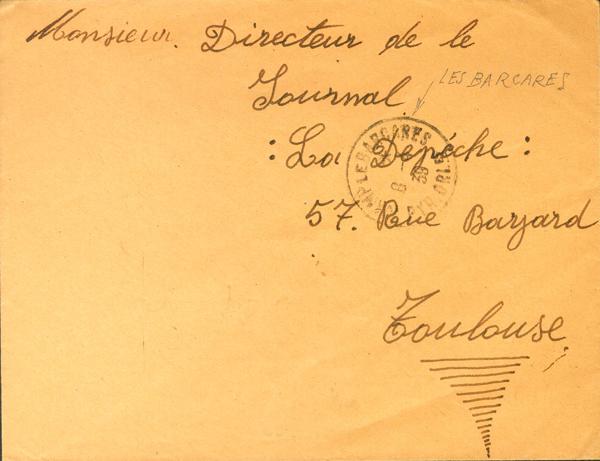 Monsieur. Directeur de le
Journal
LES BARCARES
: La Depéche :
LE BARCARES
39
57. Rue Bayard
Toulouse.